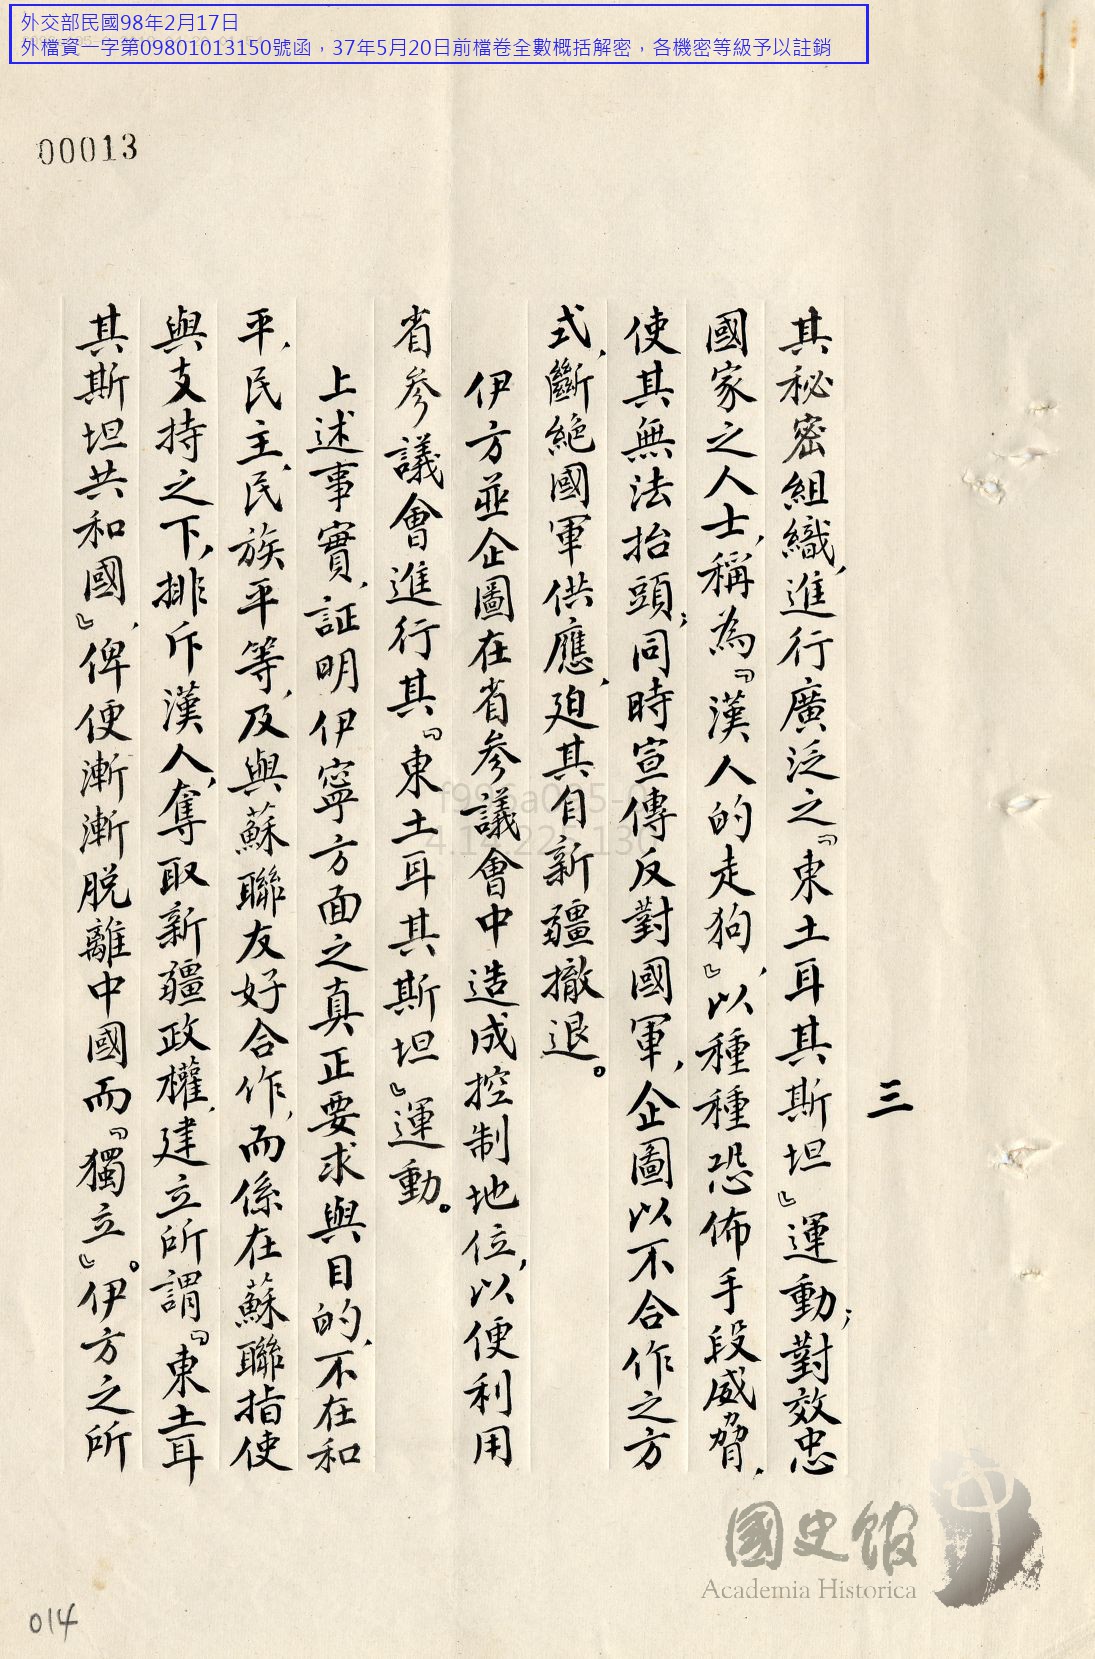 外交部民國98年2月17日
外檔資一字第09801013150號函，37年5月20日前檔卷全數概括解密，各機密等級予以註銷
00013
三
其秘密組織，進行廣泛之『東土耳其斯坦』運動；對效忠
國家之人士，稱為『漢人的走狗』，以種種恐佈手段威脅，
使其無法抬頭；同時宣傳反對國軍，企圖以不合作之方
式，斷絕國軍供應，廹其自新疆撤退。
伊方並企圖在省參議會中造成控制地位，以便利用
省參議會進行其『東土耳其斯坦』運動。
上述事實，証明伊寧方面之真正要求與目的，不在和
平，民主，民族平等，及與蘇聯友好合作，而係在蘇聯指使
與支持之下，排斥漢人，奪取新疆政權，建立所謂『東土耳
其斯坦共和國』，俾便漸漸脫離中國而『獨立』。伊方之所
國史館
Academia Historica
014